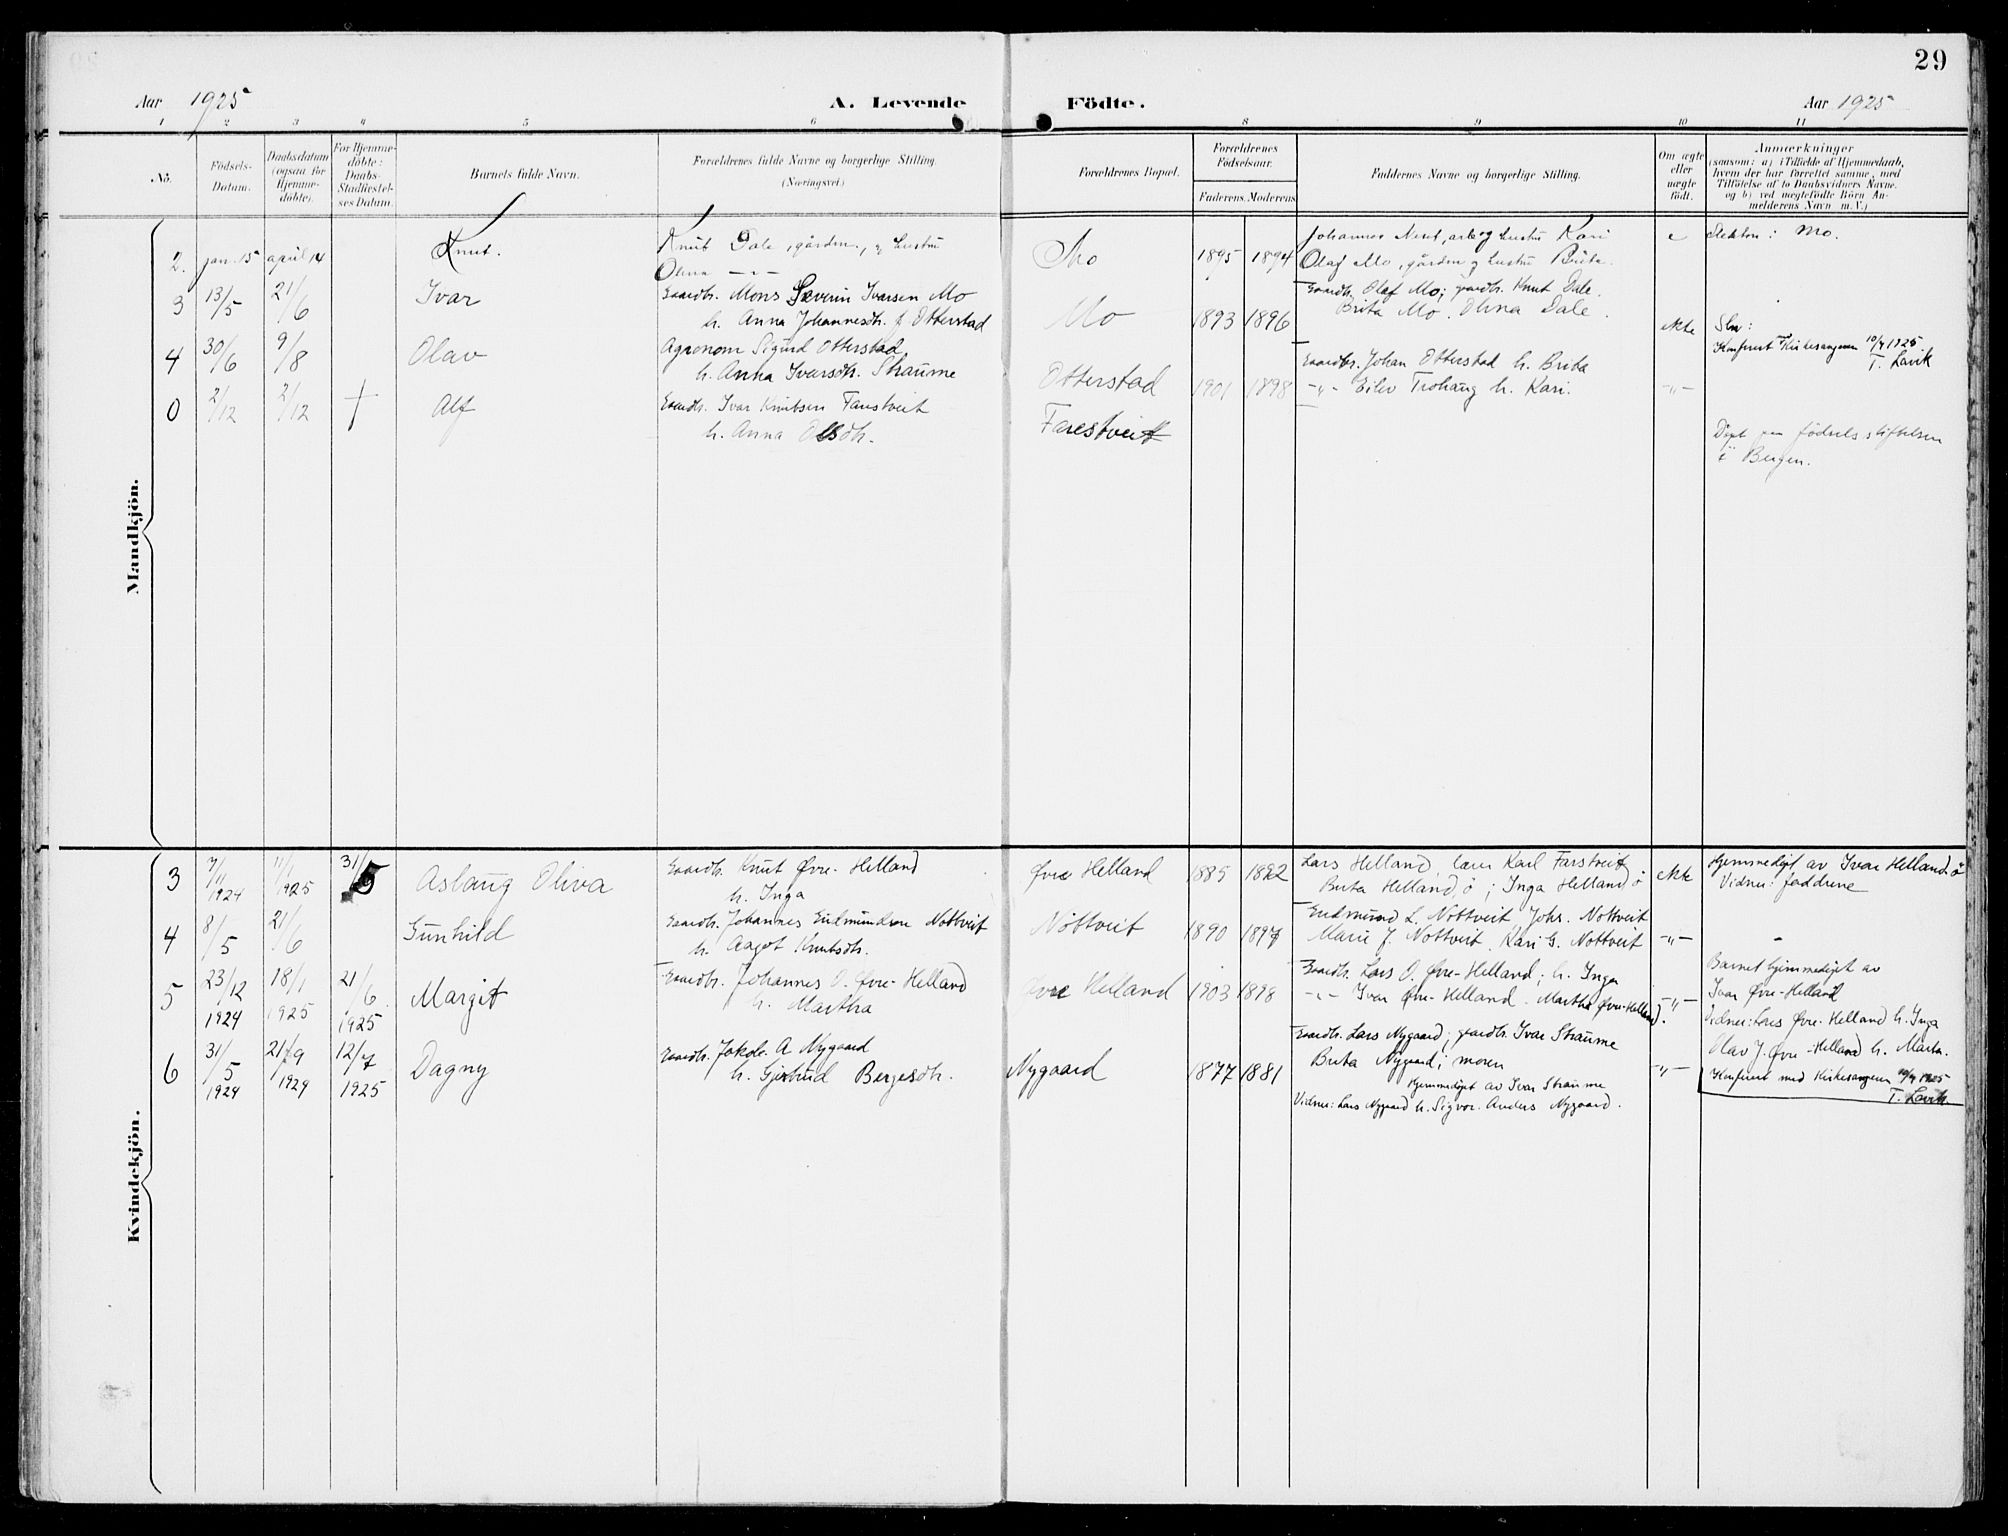 29
Aar 1925
A. Levende Födte.
Aar 1925
1 2 3 4 5 6 8 9 10 11
No.
Födsels-Datum.
Daabsdatum (ogsaa for Hjemme-döbte).
For Hjemme-döbte: Daabs-Stadfæstel-ses Datum.
Barnets fulde Navn.
Forældrenes fulde Navne og borgerlige Stilling. (Næringsvei.)
Forældrenes Bopæl.
Forældrenes Födselsaar.
Faderens. Moderens.
Faddernes Navne og borgerlige Stilling.
Om ægte eller uægte födt.
Anmærkninger
(saasom: a) i Tilfælde af Hjemmedaab,
hvem der har forrettet samme, med
Tilföielse af to Daabsvidners Navne.
og b) ved uægtefödte Börn An-
melderens Navn m. V.)
Mandkjön.
2. jan. 15 april 14 Knut. Knut Dale, gårdm., og hustru
Olina — " — Mo 1895 1894 Johannes Neset, arb og hustru Kari
Olaf Mo, gårdm og hustru Brita. e Slekton: Mo.
3 13/5 21/6 Ivar Gaardbr. Mons Severin Ivarsen Mo
h. Anna Johannesdtr. f Otterstad Mo 1893 1896 Gaardbr. Olaf Mo; gaardbr. Knut Dale.
Brita Mo. Olina Dale. ekte
4 30/6 9/8 Olav Agronom Sigurd Otterstad
h. Anna Ivarsdtr. Straume Otterstad 1901 1898 Gaardbr. Johan Otterstad h. Brita
—"— Eilev Trohaug h. Kari. —"—
Konferert Kirkesangeren 10/4 1925
T. Lavik
0 2/12 2/12 + Alf Gaardbr. Ivar Knutsen Farestveit
h. Anna Olsdtr. Farestveit
Døpt paa fødselsstiftelsen
i Bergen.
Kvindekjön.
3 7/11 1924 11/1 1925 31/5 Aslaug Oliva Gaardbr. Knut Øvre-Helland
h. Inga Øvre Helland 1885 1892 Lars Helland, Karl Farstveit
Brita Helland ö; Inga Helland ö ekte Hjemmedøpt av Ivar Helland ö
Vidner: fadderne
4 8/5 21/6 Gunhild Gaardbr. Johannes Nottveit
h. Aagot Knutsdtr. Nöttveit 1890 1897 Gudmund L. Nottveit Johs. Nottveit
Marie J. Nottveit, Kari G. Nottveit —"— -
5 23/12 1924 18/1 1925 21/6 1925 Margit Gaardbr. Johannes O. Øvre-Helland
h. Martha Øvre Helland 1903 1898 Gaardbr. Lars O. Øvre-Helland; h. Inga
—"— Ivar Øvre-Helland. Martha Øvre-Helland. —"—
Barnet hjemmedøpt av
Ivar Øvre-Helland
Vidner: Lars Øvre-Helland h. Inga
Olav J. Øvre-Helland h. Marta.
6 31/5 1924 21/9 1924 12/7 1925 Dagny Gaardbr. Jakob A Nygaard
h. Gjertrud Bergesdtr. Nygaard 1877 1881 Gaardbr. Lars Nygaard; gaardbr. Ivar Straume
Brita Nygaard; moren —"—
Hjemmedøpt av Ivar Straume
Vidner: Lars Nygaard h. Sigvor. Anders Nygaard.
Konferert med Kirkesangeren 10/4 1925
T. Lavik.